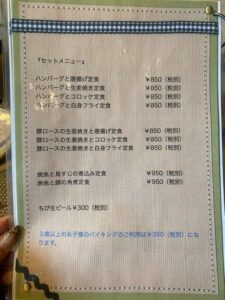 『セットメニュー』
ハンバーグと唐揚げ定食 ￥850（税別）
ハンバーグと生姜焼き定食 ￥850（税別）
ハンバーグとコロッケ定食 ￥850（税別）
ハンバーグと白身フライ定食 ￥850（税別）
豚ロースの生姜焼きと唐揚げ定食 ￥850（税別）
豚ロースの生姜焼きとコロッケ定食 ￥850（税別）
豚ロースの生姜焼きと白身フライ定食 ￥850（税別）
焼魚と牛すじの煮込み定食 ￥950（税別）
焼魚と豚の角煮定食 ￥950（税別）
ちび生ビール￥300（税別）
3歳以上のお子様のバイキングのご利用は￥350（税別）にな
ります。